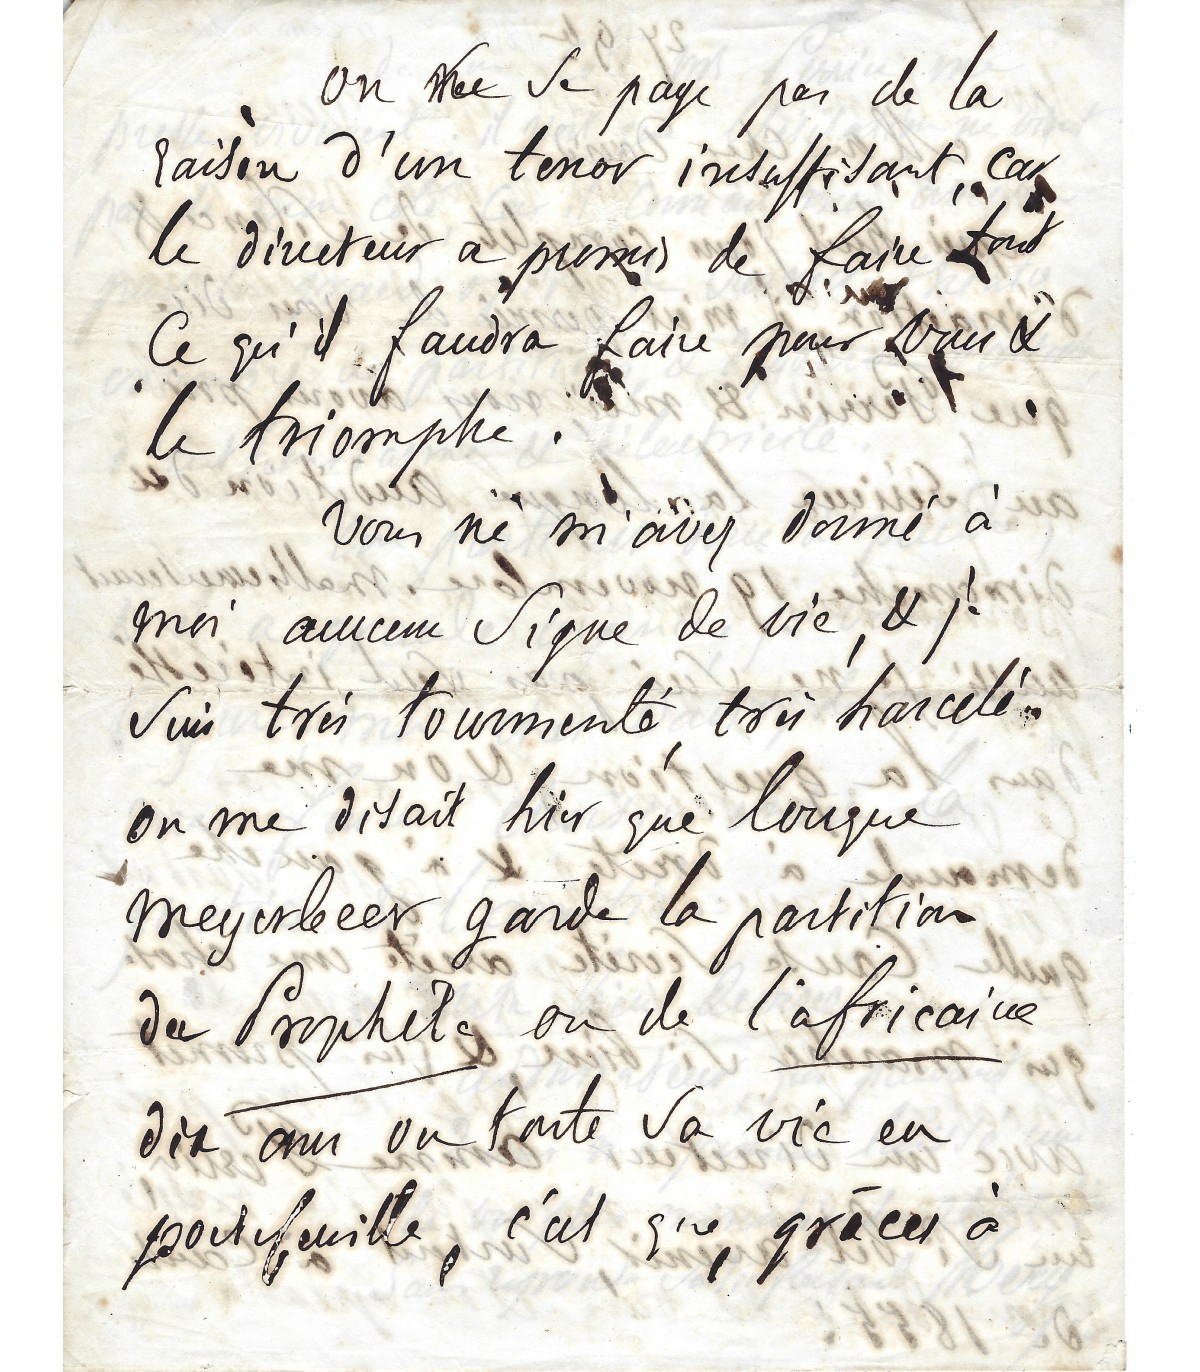 on ne se paye pas de la
raison d'un tenor insuffisant, car
le directeur a promis de faire tout
ce qu'il faudra faire pour vous &
le triomphe.
Vous ne m'avez donné à
moi aucun signe de vie, & je
suis très tourmenté, très harcelé.
on me disait hier que lorsque
meyerbeer garde la partition
du Prophète ou de l'africaine
dix ans ou toute sa vie en
portefeuille, c'est que, grâces à